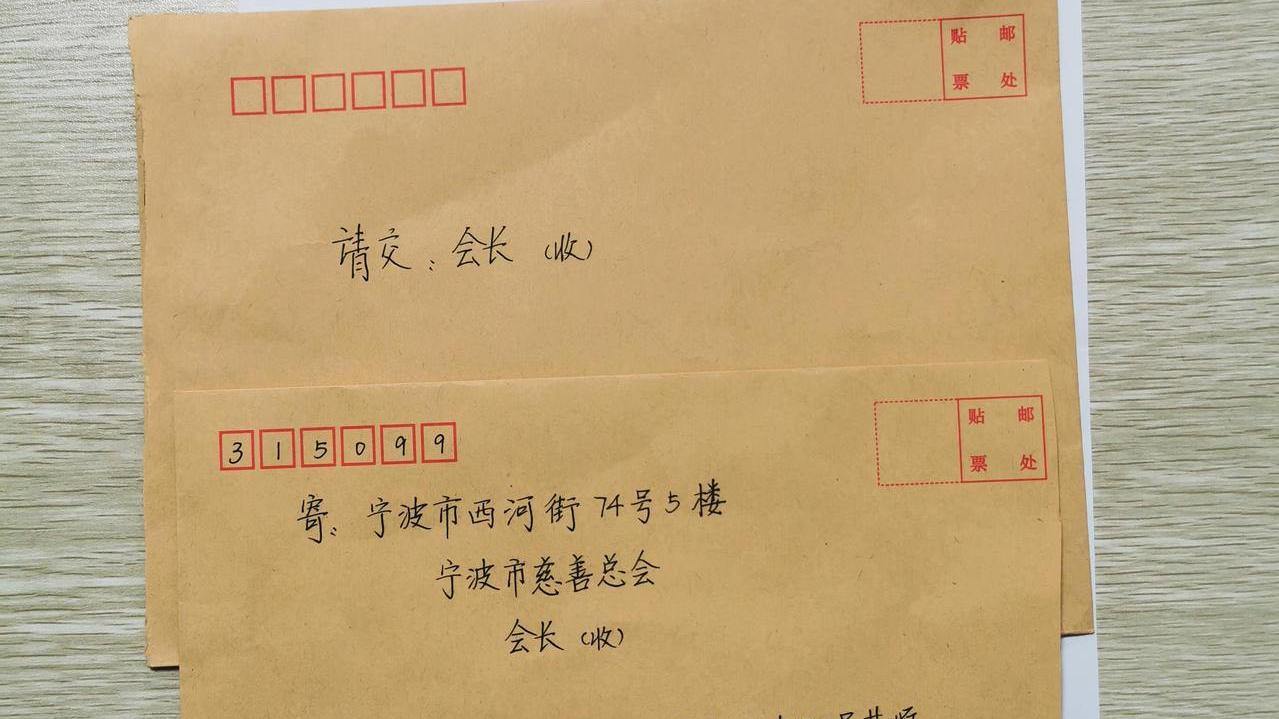 贴 邮
票 处
请交：会长（收）
贴 邮
票 处
315099
寄：宁波市西河街74号5楼
宁波市慈善总会
会长（收）